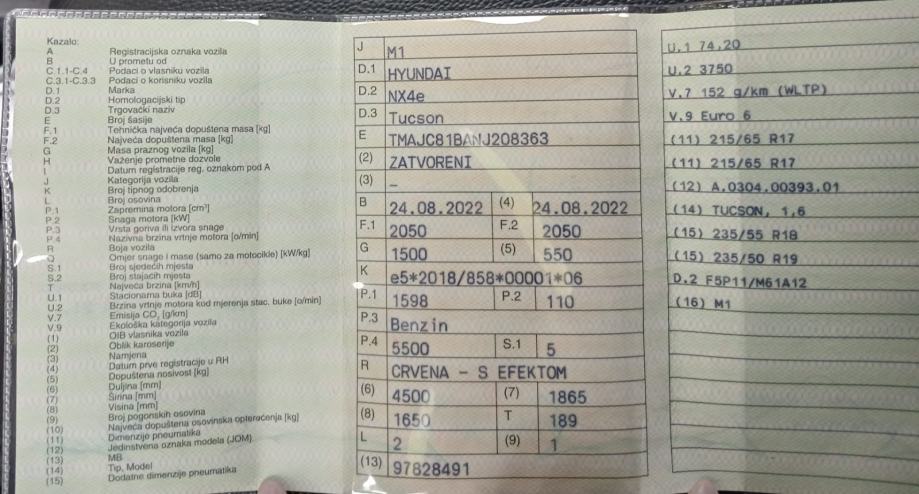 Kazalo:
A Registracijska oznaka vozila
B U prometu od
C.1.1-C.4 Podaci o vlasniku vozila
C.3.1-C.3.3 Podaci o korisniku vozila
D.1 Marka
D.2 Homologacijski tip
D.3 Trgovački naziv
E Broj šasije
F.1 Tehnička najveća dopuštena masa [kg]
F.2 Najveća dopuštena masa [kg]
G Masa praznog vozila [kg]
H Važenje prometne dozvole
I Datum registracije reg. oznakom pod A
J Kategorija vozila
K Broj tipnog odobrenja
L Broj osovina
P.1 Zapremina motora [cm³]
P.2 Snaga motora [kW]
P.3 Vrsta goriva ili izvora snage
P.4 Nazivna brzina vrtnje motora [o/min]
R Boja vozila
Q Omjer snage i mase (samo za motocikle) [kW/kg]
S.1 Broj sjedećih mjesta
S.2 Broj stajaćih mjesta
T Najveća brzina [km/h]
U.1 Stacionarna buka [dB]
U.2 Brzina vrtnje motora kod mjerenja stac. buke [o/min]
V.7 Emisija CO₂ [g/km]
V.9 Ekološka kategorija vozila
(1) OIB vlasnika vozila
(2) Oblik karoserije
(3) Namjena
(4) Datum prve registracije u RH
(5) Dopuštena nosivost [kg]
(6) Duljina [mm]
(7) Širina [mm]
(8) Visina [mm]
(9) Broj pogonskih osovina
(10) Najveća dopuštena osovinska opterećenja [kg]
(11) Dimenzije pneumatika
(12) Jedinstvena oznaka modela (JOM)
(13) MB
(14) Tip, Model
(15) Dodatne dimenzije pneumatika
J M1
D.1 HYUNDAI
D.2 NX4e
D.3 Tucson
E TMAJC81BANJ208363
(2) ZATVORENI
(3) –
B 24.08.2022 (4) 24.08.2022
F.1 2050 F.2 2050
G 1500 (5) 550
K e5*2018/858*00001*06
P.1 1598 P.2 110
P.3 Benzin
P.4 5500 S.1 5
R CRVENA - S EFEKTOM
(6) 4500 (7) 1865
(8) 1650 T 189
L 2 (9) 1
(13) 97828491
U.1 74,20
U.2 3750
V.7 152 g/km (WLTP)
V.9 Euro 6
(11) 215/65 R17
(11) 215/65 R17
(12) A.0304.00393.01
(14) TUCSON, 1,6
(15) 235/55 R18
(15) 235/50 R19
D.2 F5P11/M61A12
(16) M1